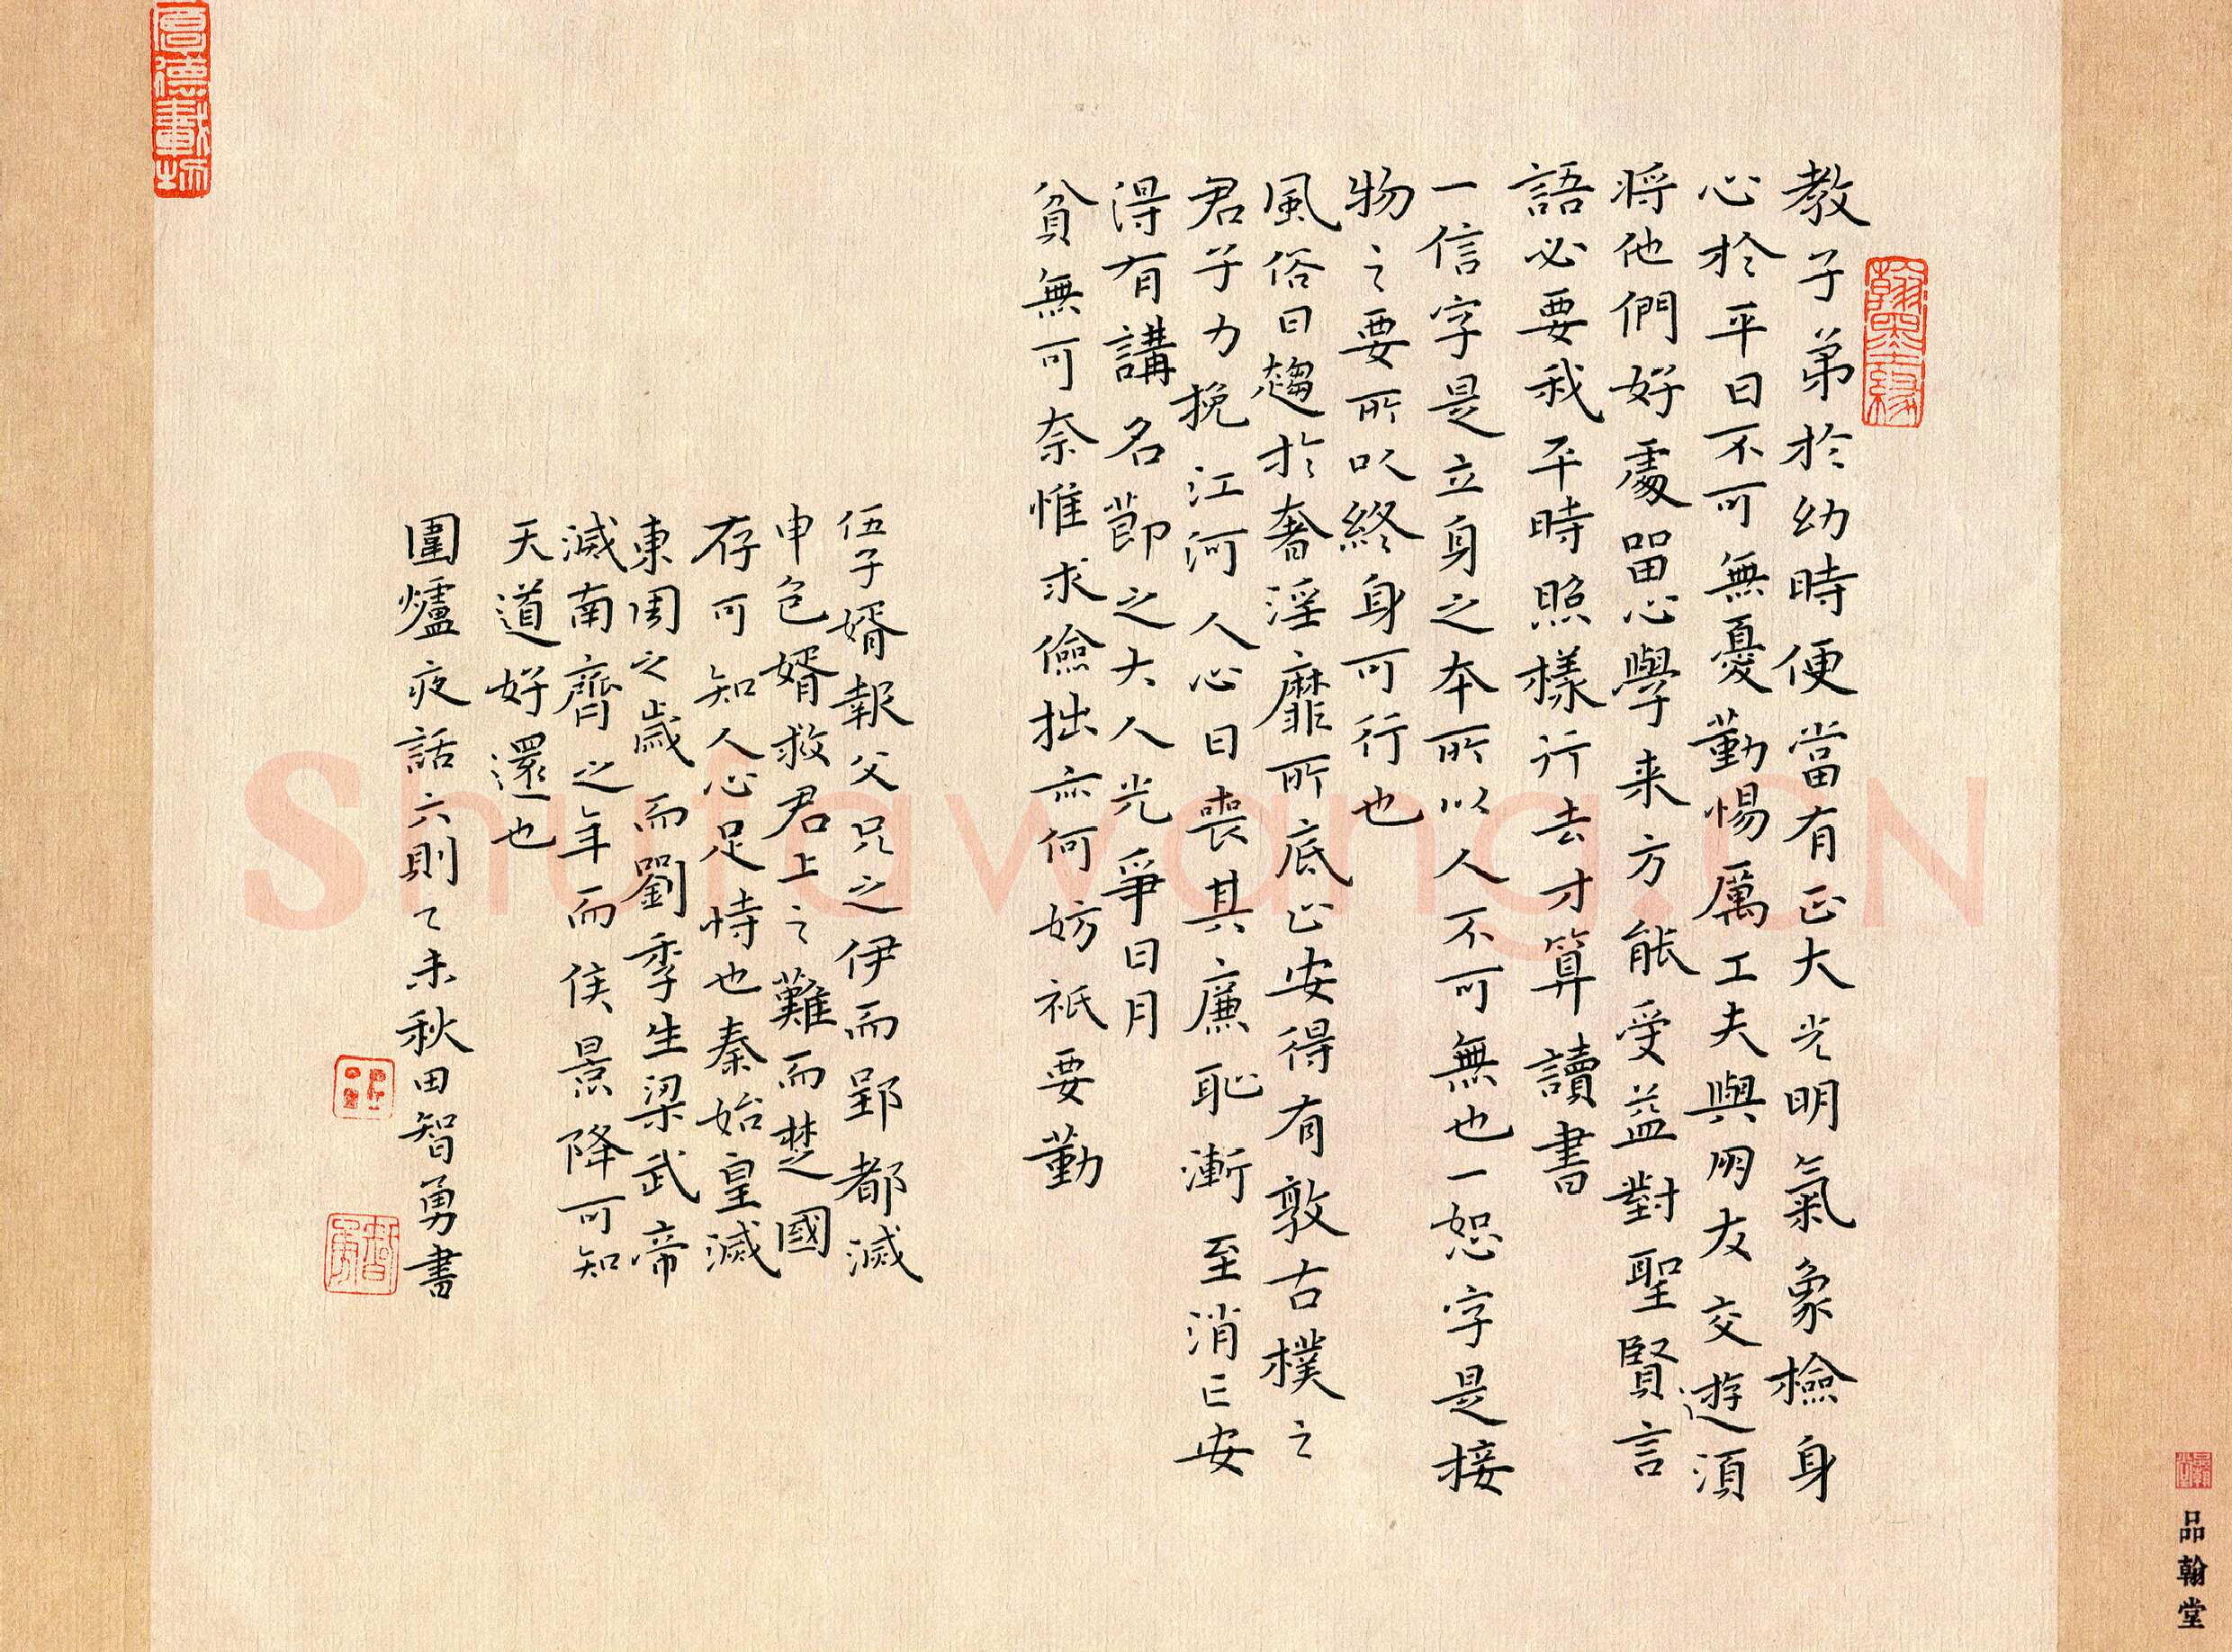 教子弟於幼時便當有正大光明氣象檢身
心於平日不可無憂勤惕厲工夫與朋友交遊須
將他們好處留心學来方能受益對聖賢言
語必要我平時照樣行去才算讀書
一信字是立身之本所以人不可無也一恕字是接
物之要所以終身可行也
風俗日趨於奢淫靡所底止安得有敦古樸之
君子力挽江河人心日喪其廉恥漸至消亡安
得有講名節之大人光爭日月
貧無可奈惟求儉拙亦何妨祇要勤
伍子婿報父兄之伊而郢都滅
申包婿救君上之難而楚國
存可知人心足恃也秦始皇滅
東周之歲而劉季生梁武帝
滅南齊之年而侯景降可知
天道好還也
圍爐夜話六則乙未秋田智勇書
翰墨緣
厚德載物
智勇
品翰堂
Shufawang.CN